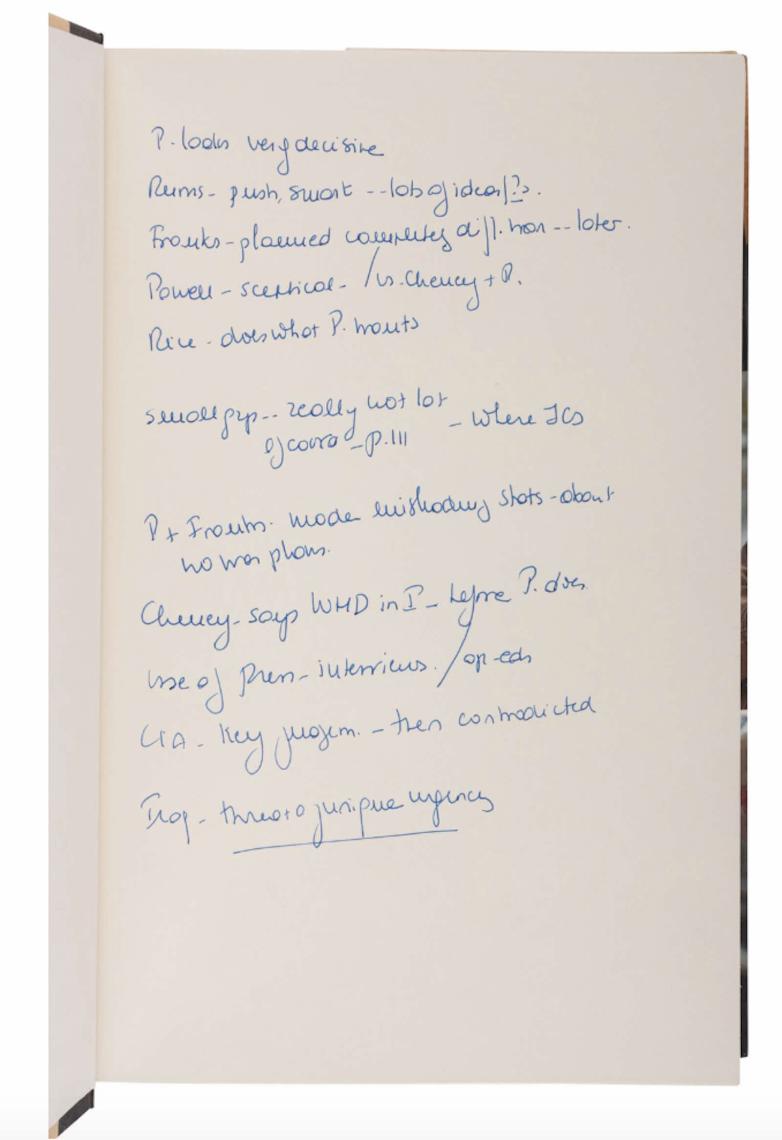 P. looks very decisive
Rums - push, smart -- lots of ideas/?s.
Franks - planned completely diff. war -- later.
Powell - sceptical - / vs. Cheney + P.
Rice - does what P. wants
small grp -- really not lot - where JCs
of coord - p. 111
P + Franks - made misleading stats - about
no war plans.
Cheney - says WMD in I - before P. does
Use of Press - interviews / op-eds
CIA - Key judgem. - then contradicted
Iraq - threat of unique urgency